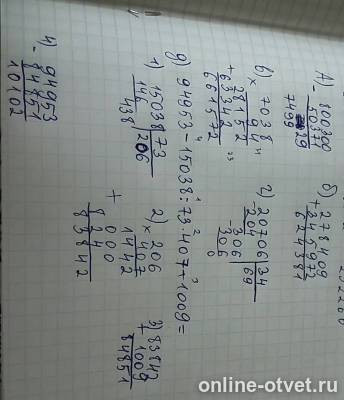 А) 800300
- 50371
7499 29
б) 278409
+ 345972
624381
в) 7038
× 94
28152
+ 63342
661572
г) 20706 | 34
- 204 | 69
- 306
306
0
д) 94953 - 15038 : 73 · 407 + 1009 =
1) 15038 | 73
146 | 206
438
2) 206
× 407
1442
+ 000
824
83842
3) 83842
+ 1009
84851
4) 94953
- 84851
10102
online-otvet.ru